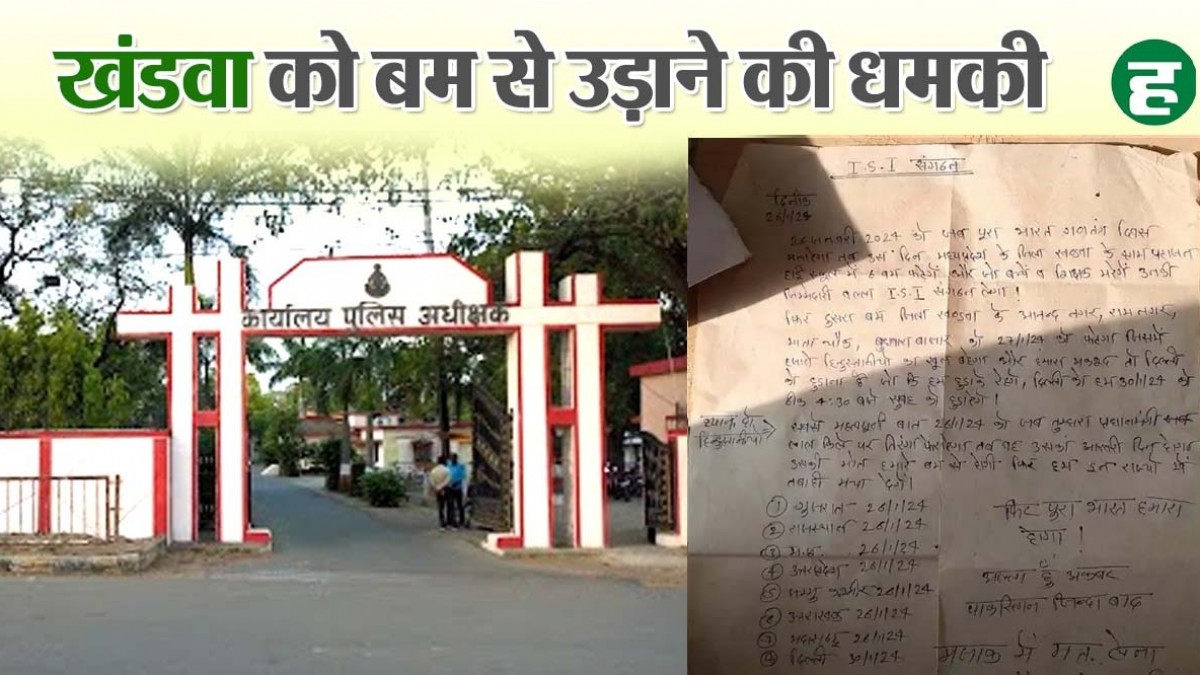 खंडवा को बम से उड़ाने की धमकी
ह
कार्यालय पुलिस अधीक्षक
I.S.I संगठन
दिनांक
26/1/24
26 जनवरी 2024 को जब पूरा भारत गणतंत्र दिवस
मनायेगा तब उस दिन मध्यप्रदेश के जिला खण्डवा के ग्राम
हाई स्कूल में बम और जो बच्चे व शिक्षक मरेंगे उनकी
जिम्मेदारी I.S.I संगठन होगा!
फिर दुसरा बम जिला खण्डवा के आनन्द नगर, रामनगर,
माता चौक, बुधवारा बाजार को 27/1/24 को फटेगा जिसमें
हमारे हिन्दुस्तानीयो का खून बहेगा और हमारा मकसद तो दिल्ली
को उड़ाना है जो कि हम उड़ाके रहेगे, दिल्ली को हम 30/1/24 को
ठीक 4:30 बजे सुबह को उड़ायेगे!
ध्यान दो
हिन्दुस्तानीयो
सबसे महत्वपूर्ण बात 26/1/24 को जब तुम्हारा प्रधानमंत्री
लाल किले पर तिरंगा तब वह उसका आखरी दिन होगा
उसकी मौत हमारे बम से होगी फिर हम इन राज्यो में
तबाही मचा देगें!
① गुजरात 26/1/24
② राजस्थान 26/1/24
③ म.प्र. 26/1/24
④ उत्तरप्रदेश 26/1/24
⑤ जम्मु कश्मीर 26/1/24
⑥ उत्तराखण्ड 26/1/24
⑦ 26/1/24
⑧ दिल्ली 30/1/24
फिर पूरा भारत हमारा
होगा!
अल्लाह हूँ अकबर
पाकिस्तान जिन्दा बाद
मजाक में मत लेना